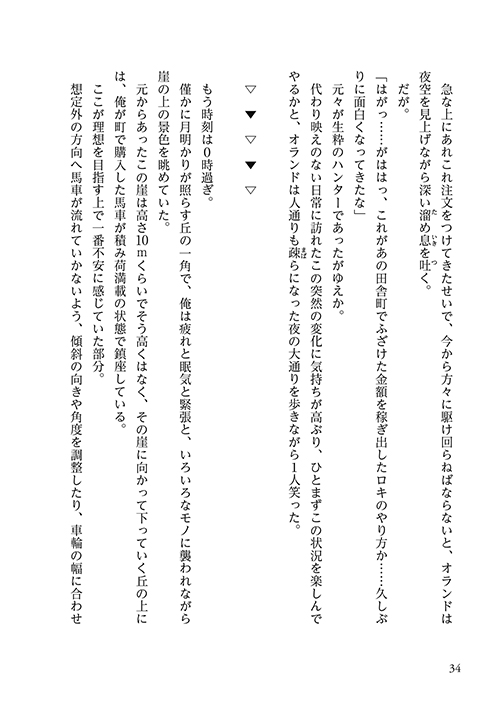 急な上にあれこれ注文をつけてきたせいで、今から方々に駆け回らねばならないと、オランドは
夜空を見上げながら深い溜め息を吐く。
だが。
「はがっ……がははっ、これがあの田舎町でふざけた金額を稼ぎ出したロキのやり方か……久しぶ
りに面白くなってきたな」
元々が生粋のハンターであったがゆえか。
代わり映えのない日常に訪れたこの突然の変化に気持ちが高ぶり、ひとまずこの状況を楽しんで
やるかと、オランドは人通りも疎らになった夜の大通りを歩きながら1人笑った。
▽▼▽▼▽
もう時刻は0時過ぎ。
僅かに月明かりが照らす丘の一角で、俺は疲れと眠気と緊張と、いろいろなモノに襲われながら
崖の上の景色を眺めていた。
元からあったこの崖は高さ10mくらいでそう高くはなく、その崖に向かって下っていく丘の上に
は、俺が町で購入した馬車が積み荷満載の状態で鎮座している。
ここが理想を目指す上で一番不安に感じていた部分。
想定外の方向へ馬車が流れていかないよう、傾斜の向きや角度を調整したり、車輪の幅に合わせ
34